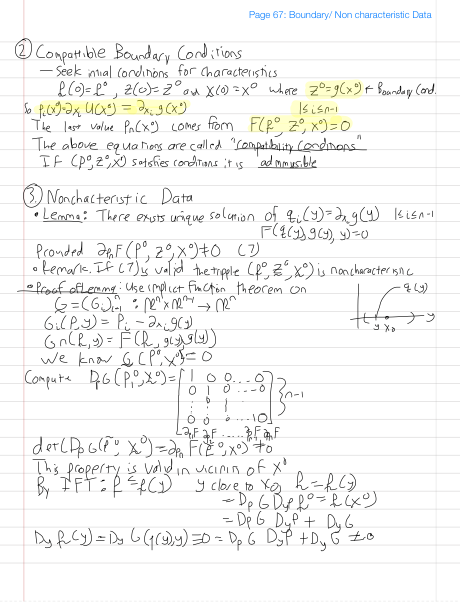 Page 67: Boundary/ Non characteristic Data
② Compatible Boundary Conditions
— Seek intial conditions for characteristics
P(0)=P⁰, Z(0)=Z⁰ and X(0)=X⁰ where Z⁰=g(X⁰) ← Boundary Cond.
So Pᵢ(X⁰)=∂xᵢ U(X⁰)=∂xᵢ g(X⁰) 1≤i≤n-1
The last value Pₙ(X⁰) comes from F(P⁰, Z⁰, X⁰)=0
The above equations are called "compatibility conditions"
IF (P⁰, Z⁰, X⁰) satisfies conditions it is admissible
③. Noncharacteristic Data
• Lemma: There exists unique solution of qᵢ(y)=∂xᵢ g(y) 1≤i≤n-1
F(q(y), g(y), y)=0
Provided ∂pₙF(P⁰, Z⁰, X⁰)≠0 (7)
• Remark. If (7) is valid the tripple (P⁰, Z⁰, X⁰) is noncharacteristic
• Proof of Lemma: Use implict function theorem on
G=(Gᵢ)ⁿᵢ₌₁ : ℝⁿ×ℝⁿ⁻¹ → ℝⁿ
q(y)
Gᵢ(P,y) = Pᵢ - ∂xᵢ g(y)
y x₀ y
Gₙ(P,y) = F(P, g(y), y)
We know G(P⁰, X⁰)=0
Compute DpG(P⁰, X⁰)= [1 0 0...0
0 1 0 ...0
0 0 0 ...10
∂p₁F ∂p₂F ..... ∂pₙF] } n-1
det(DpG(P⁰, X⁰)=∂pₙF(P⁰, X⁰)≠0
This property is valid in vicinin of X⁰
By IFT: P=P(y) y close to X₀, P=P(y)
= DpG DyP P⁰=P(X⁰)
= DpG DyP + DyG
DyP(y)=DyG(q(y),y)≡0=DpG DyP + DyG ≠0